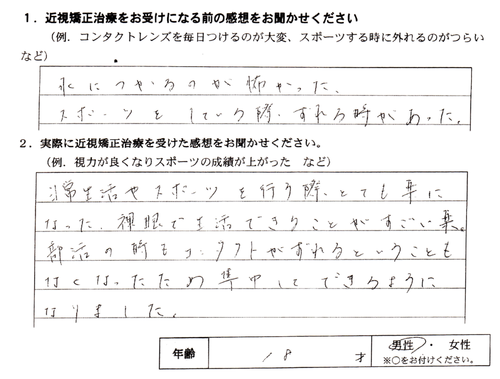 1．近視矯正治療をお受けになる前の感想をお聞かせください
（例．コンタクトレンズを毎日つけるのが大変、スポーツする時に外れるのがつらい
など）
水につかるのが怖かった。
スポーツをしている際、ずれる時があった。
2．実際に近視矯正治療を受けた感想をお聞かせください。
（例．視力が良くなりスポーツの成績が上がった　など）
日常生活やスポーツを行う際、とても楽に
なった。裸眼で生活できることがすごい楽。
部活の時もコンタクトがずれるということも
なくなったため集中してできるように
なりました。
年齢 18 才 男性・女性
※○をお付けください。